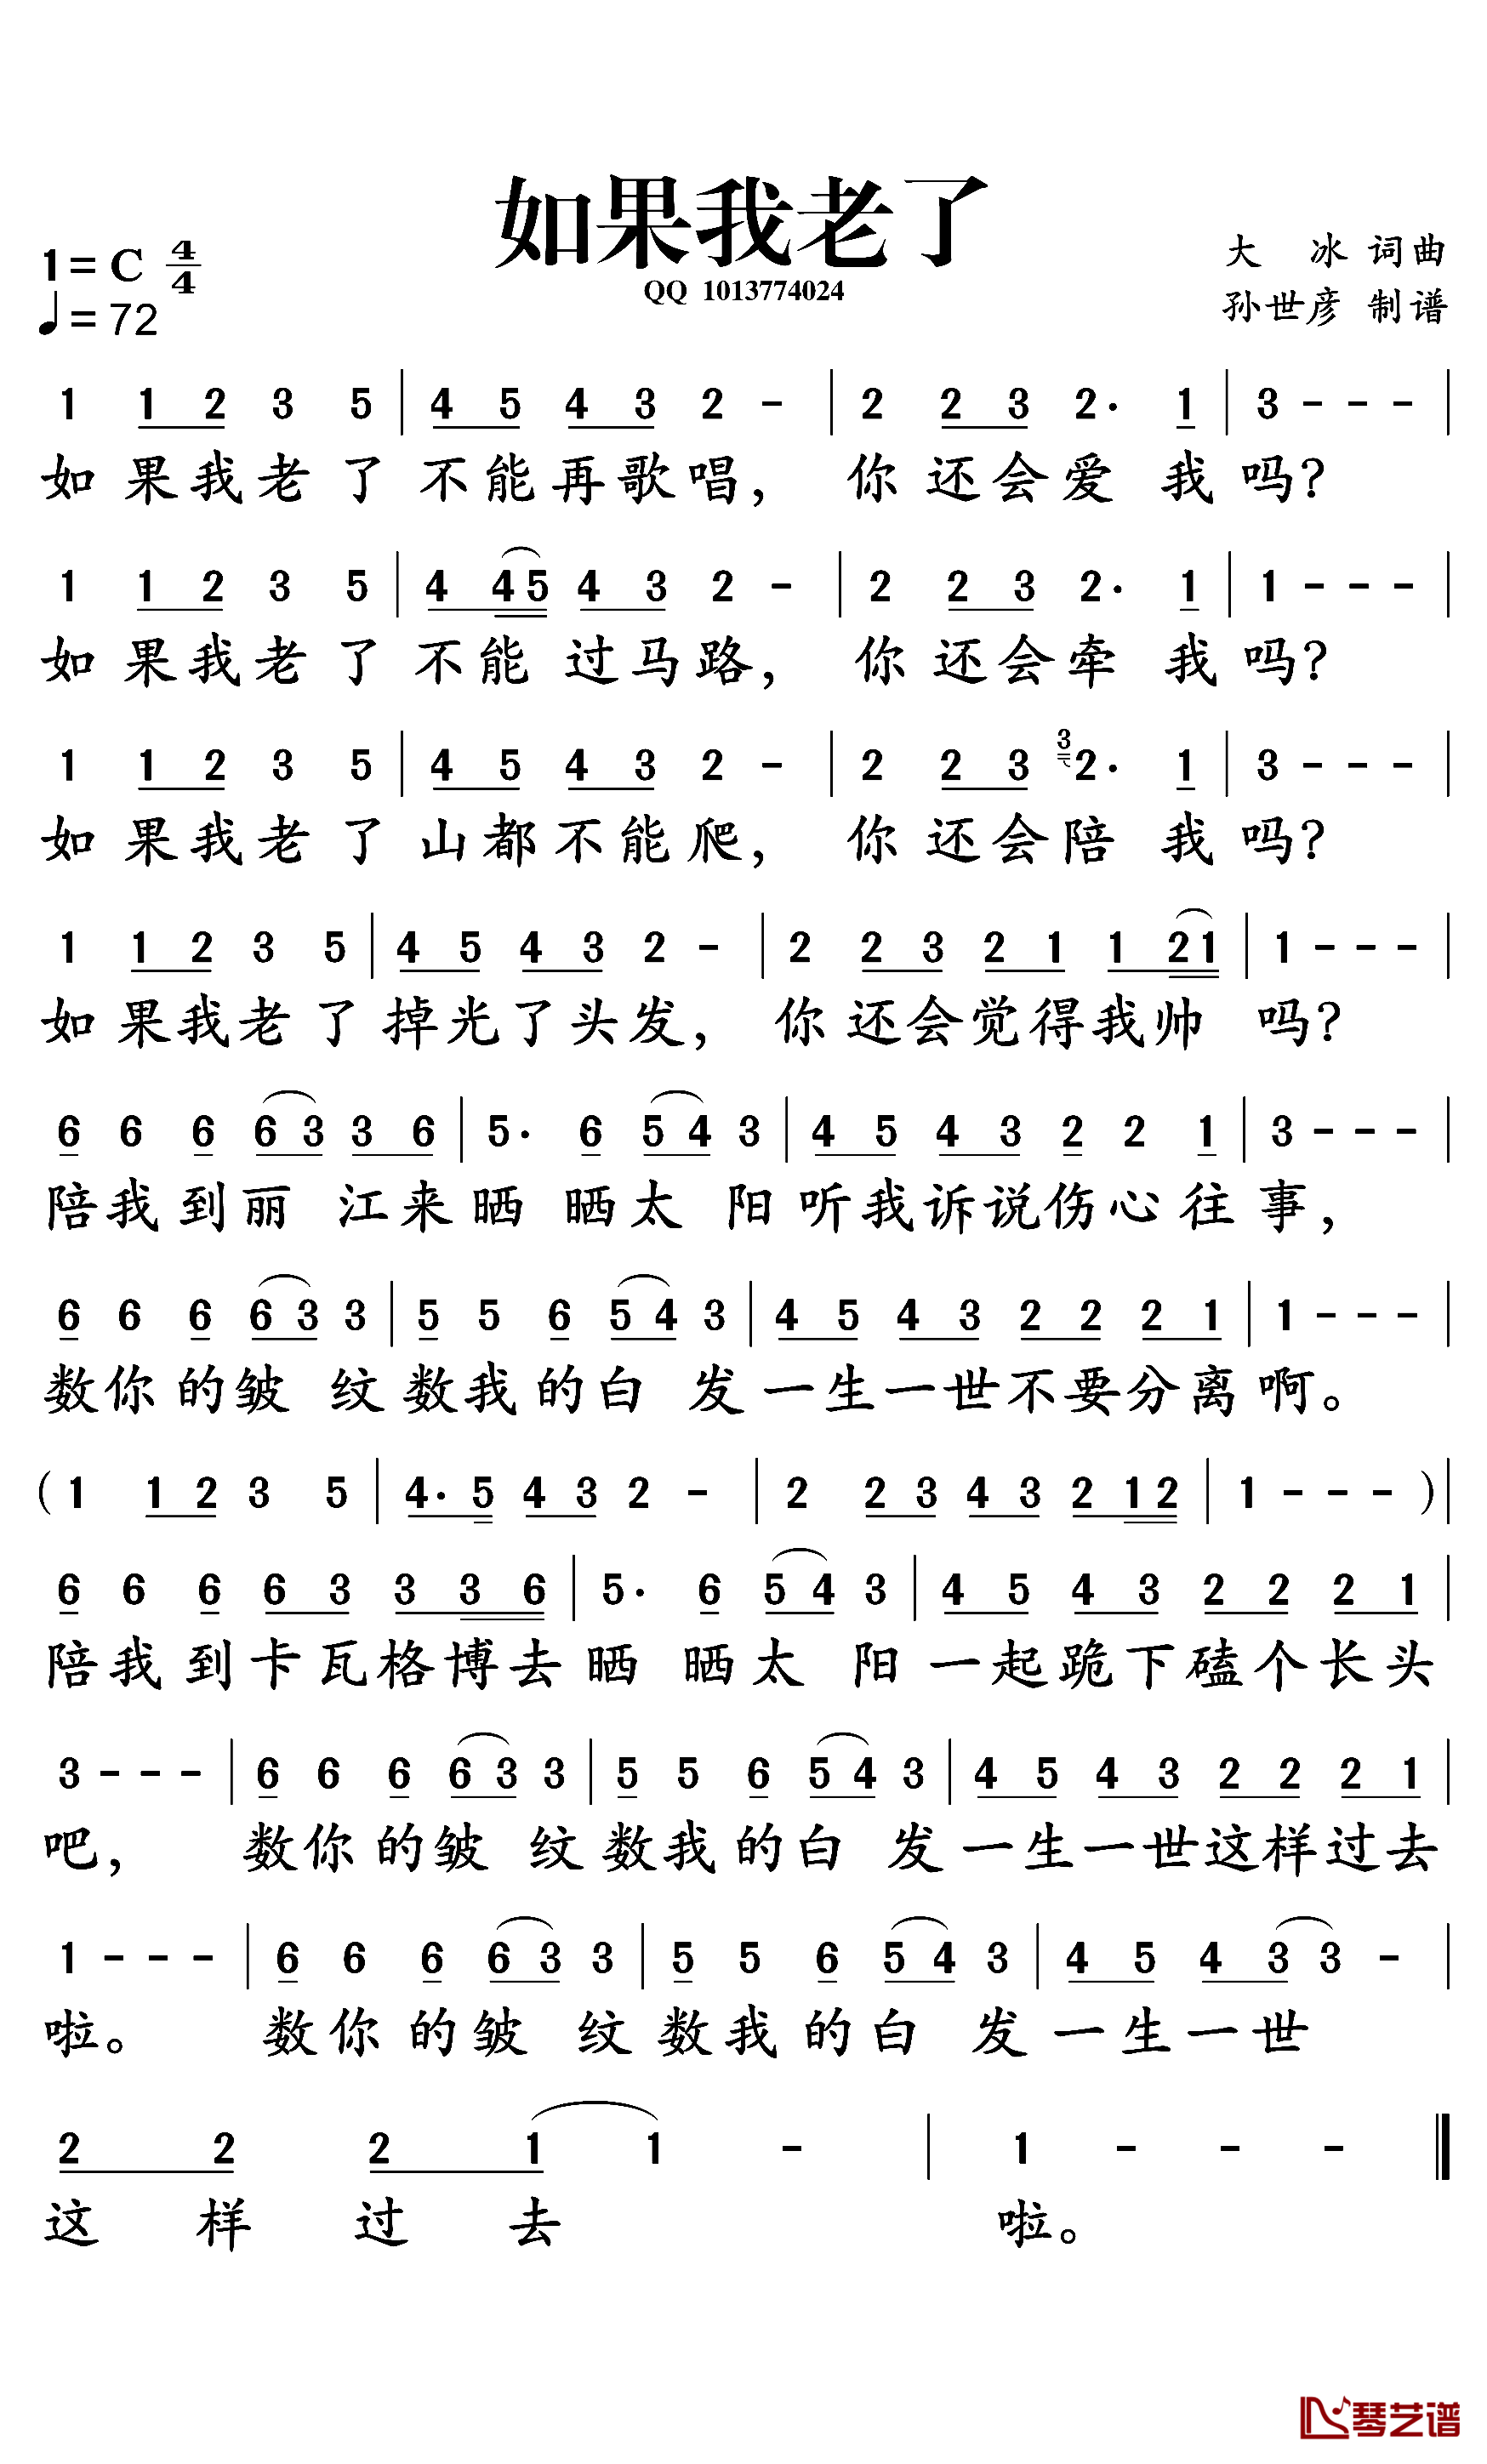 如果我老了
QQ 1013774024
1=C 4/4
♩=72
大 冰 词曲
孙世彦 制谱
1 1 2 3 5 | 4 5 4 3 2 - | 2 2 3 2· 1 | 3 - - - |
如果我老了不能再歌唱，你还会爱我吗？
1 1 2 3 5 | 4 4 5 4 3 2 - | 2 2 3 2· 1 | 1 - - - |
如果我老了不能过马路，你还会牵我吗？
1 1 2 3 5 | 4 5 4 3 2 - | 2 2 3 3 2· 1 | 3 - - - |
如果我老了山都不能爬，你还会陪我吗？
1 1 2 3 5 | 4 5 4 3 2 - | 2 2 3 2 1 1 2 1 | 1 - - - |
如果我老了掉光了头发，你还会觉得我帅吗？
6 6 6 6 3 3 6 | 5· 6 5 4 3 | 4 5 4 3 2 2 1 | 3 - - - |
陪我到丽江来晒晒太阳听我诉说伤心往事，
6 6 6 6 3 3 | 5 5 6 5 4 3 | 4 5 4 3 2 2 2 1 | 1 - - - |
数你的皱纹数我的白发一生一世不要分离啊。
( 1 1 2 3 5 | 4· 5 4 3 2 - | 2 2 3 4 3 2 1 2 | 1 - - - ) |
6 6 6 6 3 3 3 6 | 5· 6 5 4 3 | 4 5 4 3 2 2 2 1 |
陪我到卡瓦格博去晒晒太阳一起跪下磕个长头
3 - - - | 6 6 6 6 3 3 | 5 5 6 5 4 3 | 4 5 4 3 2 2 2 1 |
吧，数你的皱纹数我的白发一生一世这样过去
1 - - - | 6 6 6 6 3 3 | 5 5 6 5 4 3 | 4 5 4 3 3 - |
啦。数你的皱纹数我的白发一生一世
2 2 2 1 1 - | 1 - - - ‖
这样过去啦。
琴艺谱